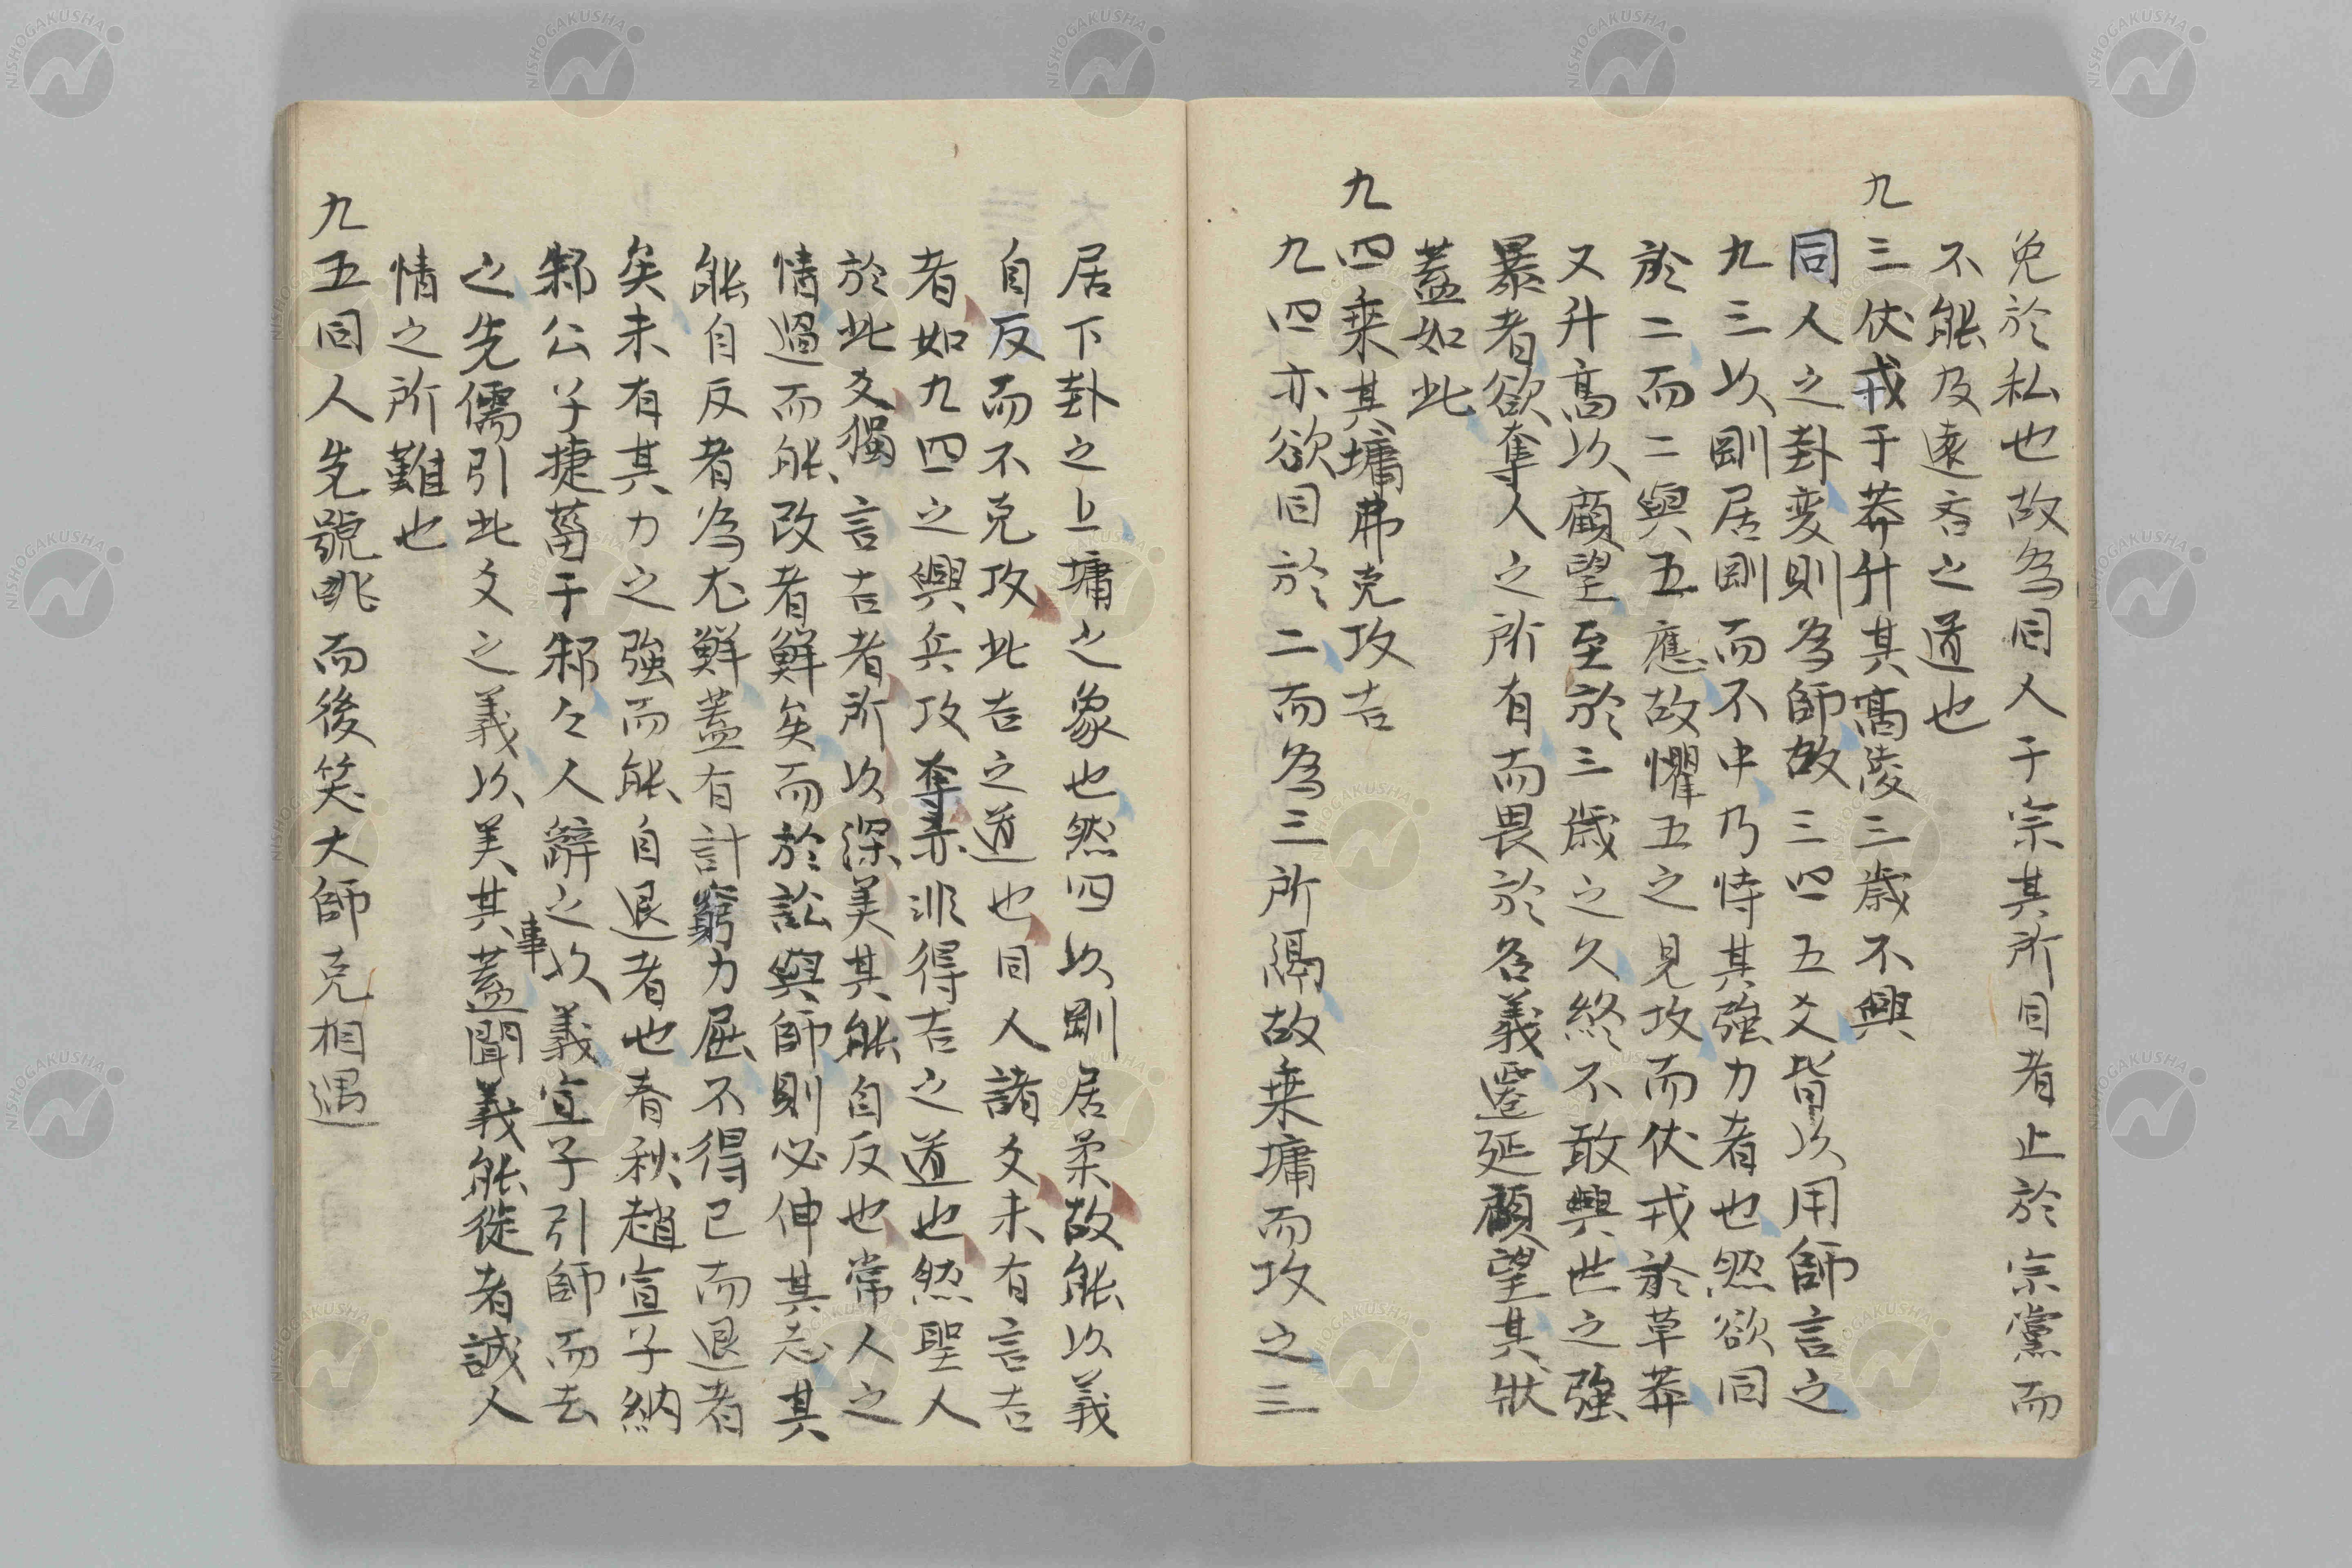 免於私也故為同人于宗其所同者止於宗黨而
不能及遠吝之道也
九三伏戎于莽升其高陵三歳不興
同人之卦変則為師故三四五爻皆以用師言之
九三以剛居剛而不中乃恃其強力者也然欲同
於二而二與五應故懼五之見攻而伏戎於草莽
又升高以顧望至於三歳之久終不敢興世之強
暴者欲奪人之所有而畏於名義遷延顧望其狀
蓋如此
九四乗其墉弗克攻吉
九四亦欲同於二而為三所隔故乗墉而攻之三
居下卦之上墉之象也然四以剛居柔故能以義
自反而不克攻此吉之道也同人諸爻未有言吉
者如九四之興兵攻奪亦非得吉之道也然聖人
於此爻獨言吉者所以深美其能自反也常人之
情過而能改者鮮矣而於訟與師則必伸其志其
能自反者為尤鮮蓋有計窮力屈不得已而退者
矣未有其力之強而能自退者也春秋趙宣子納
邾公子捷菑于邾々人辭之以義宣子引師而去
之先儒引此爻之義以美其事蓋聞義能徙者誠人
情之所難也
九五同人先號咷而後笑大師克相遇
NISHOGAKUSHA